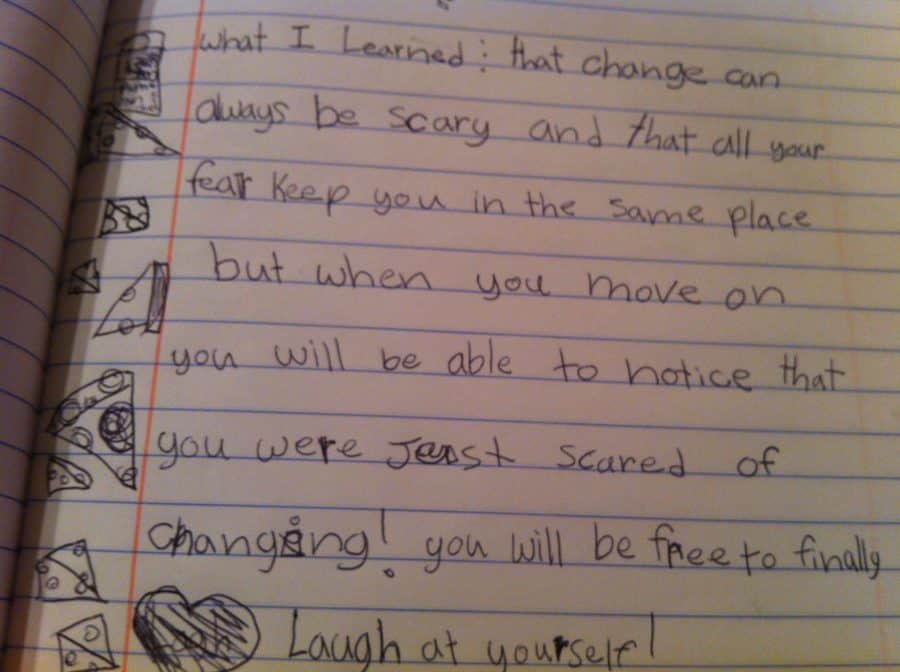 what I Learned: that change can
always be scary and that all your
fear keep you in the same place
but when you move on
you will be able to notice that
you were just scared of
changing! you will be free to finally
Laugh at yourself!